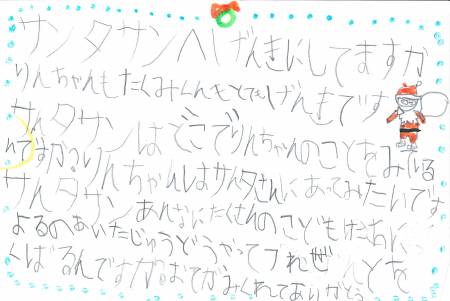 サンタサンへ げんきにしてますか
りんちゃんもたくみくんもとてもげんきです
サンタサンはどこでりんちゃんのことをみている
んですか？り りんちゃんはサンタさんにあってみたいです
サンタサン あんなにたくさんのこどもたちに
よるのあいだじゅうどうやってプれぜんとを
くばるんですか？おてがみくれてありがとう